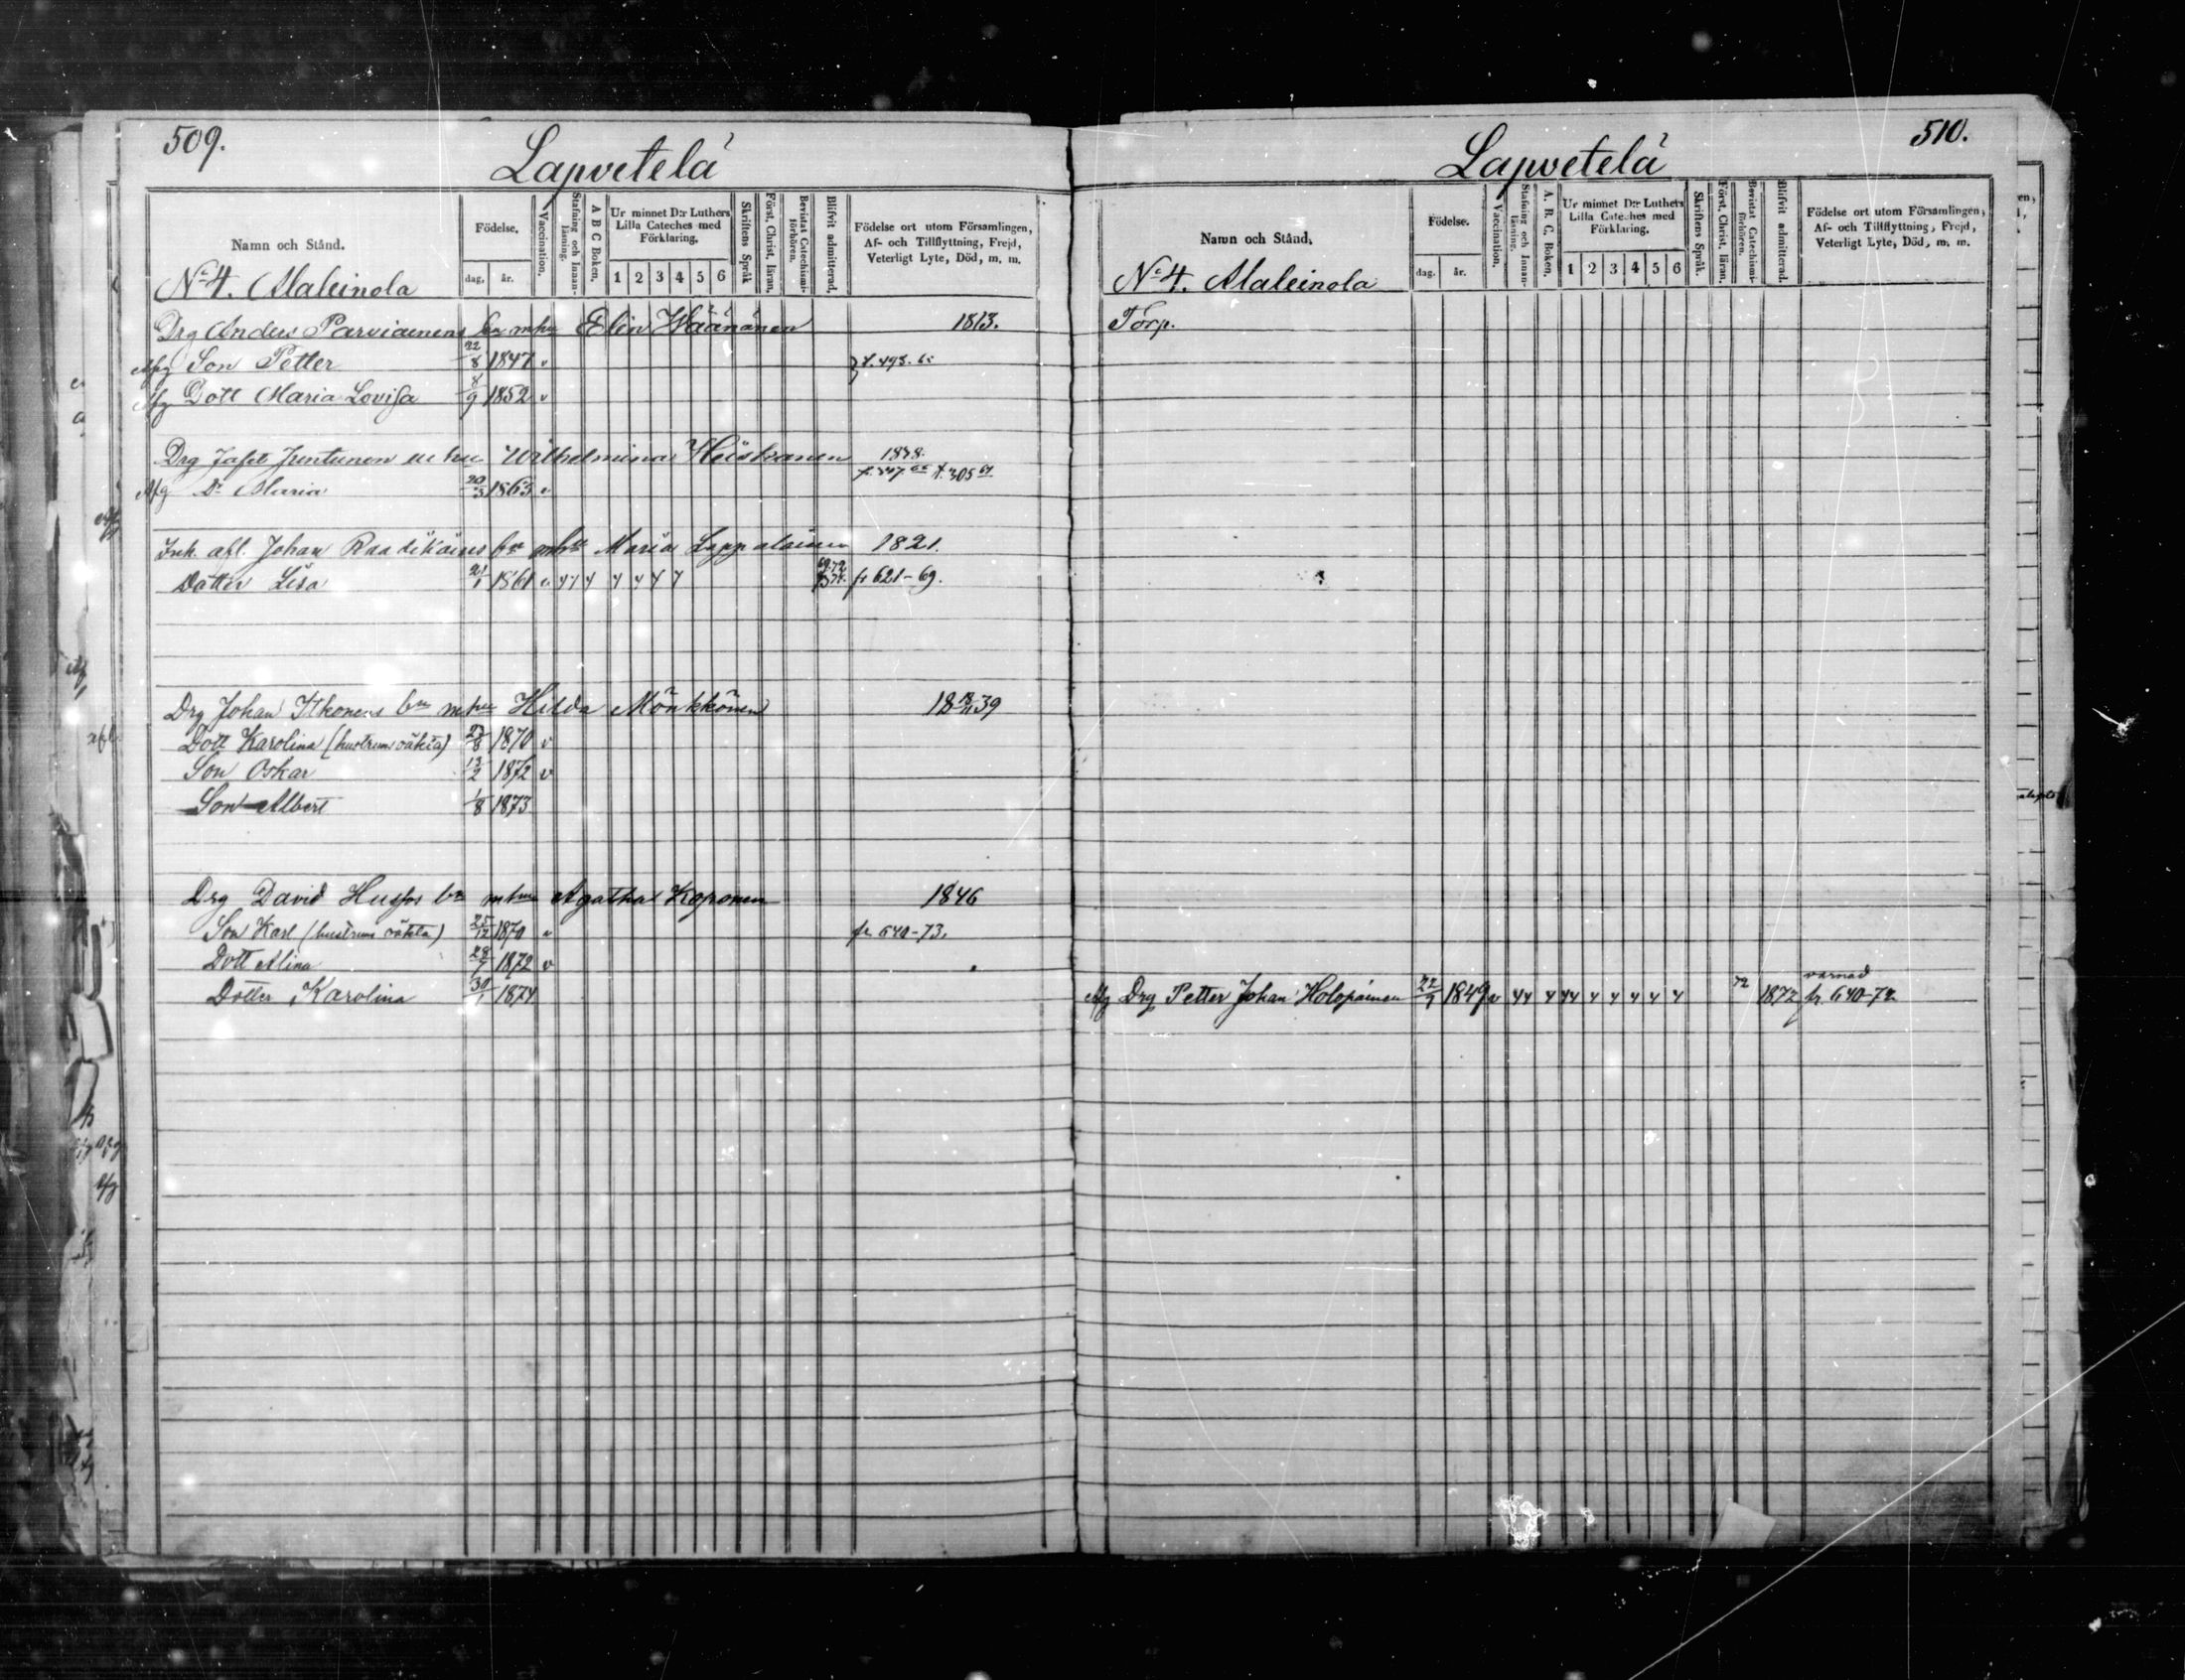 509.
Lapvetelä
Namn och Stånd.
Födelse.
dag. år.
Vaccination.
Stafning och Innanläsning.
A B C Boken.
Ur minnet D:r Luthers Lilla Cateches med Förklaring.
1 2 3 4 5 6
Skriftens Språk
Först. Christ. läran.
Bevistat Catechismiförhören.
Blifvit admitterad.
Födelse ort utom Församlingen, Af- och Tillflyttning, Frejd, Veterligt Lyte, Död, m. m.
No 4. Maleinola
Drg Anders Parviainens bn mhu Elin Häänänen 1813.
Afg Son Petter 22/8 1847 v
Afg Dott Maria Lovisa 8/9 1852 v
Drg Jafet Juntunen m hu Wilhelmina Heiskanen 1838.
Afg Dr Maria 20/3 1863 v
Inh. afl. Johan Raatikains bn mhu Maria Lappalainen 1821.
Dotter Lisa 21/1 1861 v fr 621-69.
Drg Johan Itkonens bn mhu Hilda Mönkkönen 18 39
Dott Karolina (hustruns oäkta) 27/8 1870 v
Son Oskar 13/2 1872 v
Son Albert 1/8 1873
Drg David Huplos bn mhu Agatha Koponen 1846
Son Karl (hustruns oäkta) 25/12 1870 v fr 640-73.
Dott Alina 29/7 1872 v
Dotter Karolina 30/1 1874
510.
Lapvetelä
Namn och Stånd.
Födelse.
dag. år.
Vaccination.
Stafning och Innanläsning.
A. B. C. Boken.
Ur minnet D:r Luthers Lilla Cateches med Förklaring.
1 2 3 4 5 6
Skriftens Språk.
Först. Christ. läran.
Bevistat Catechismiförhören.
Blifvit admitterad.
Födelse ort utom Församlingen, Af- och Tillflyttning, Frejd, Veterligt Lyte, Död, m. m.
No 4. Maleinola
Torp.
Afg Drg Petter Johan Holopainen 22/7 1849 v 72 1872 varnad fr. 640-72